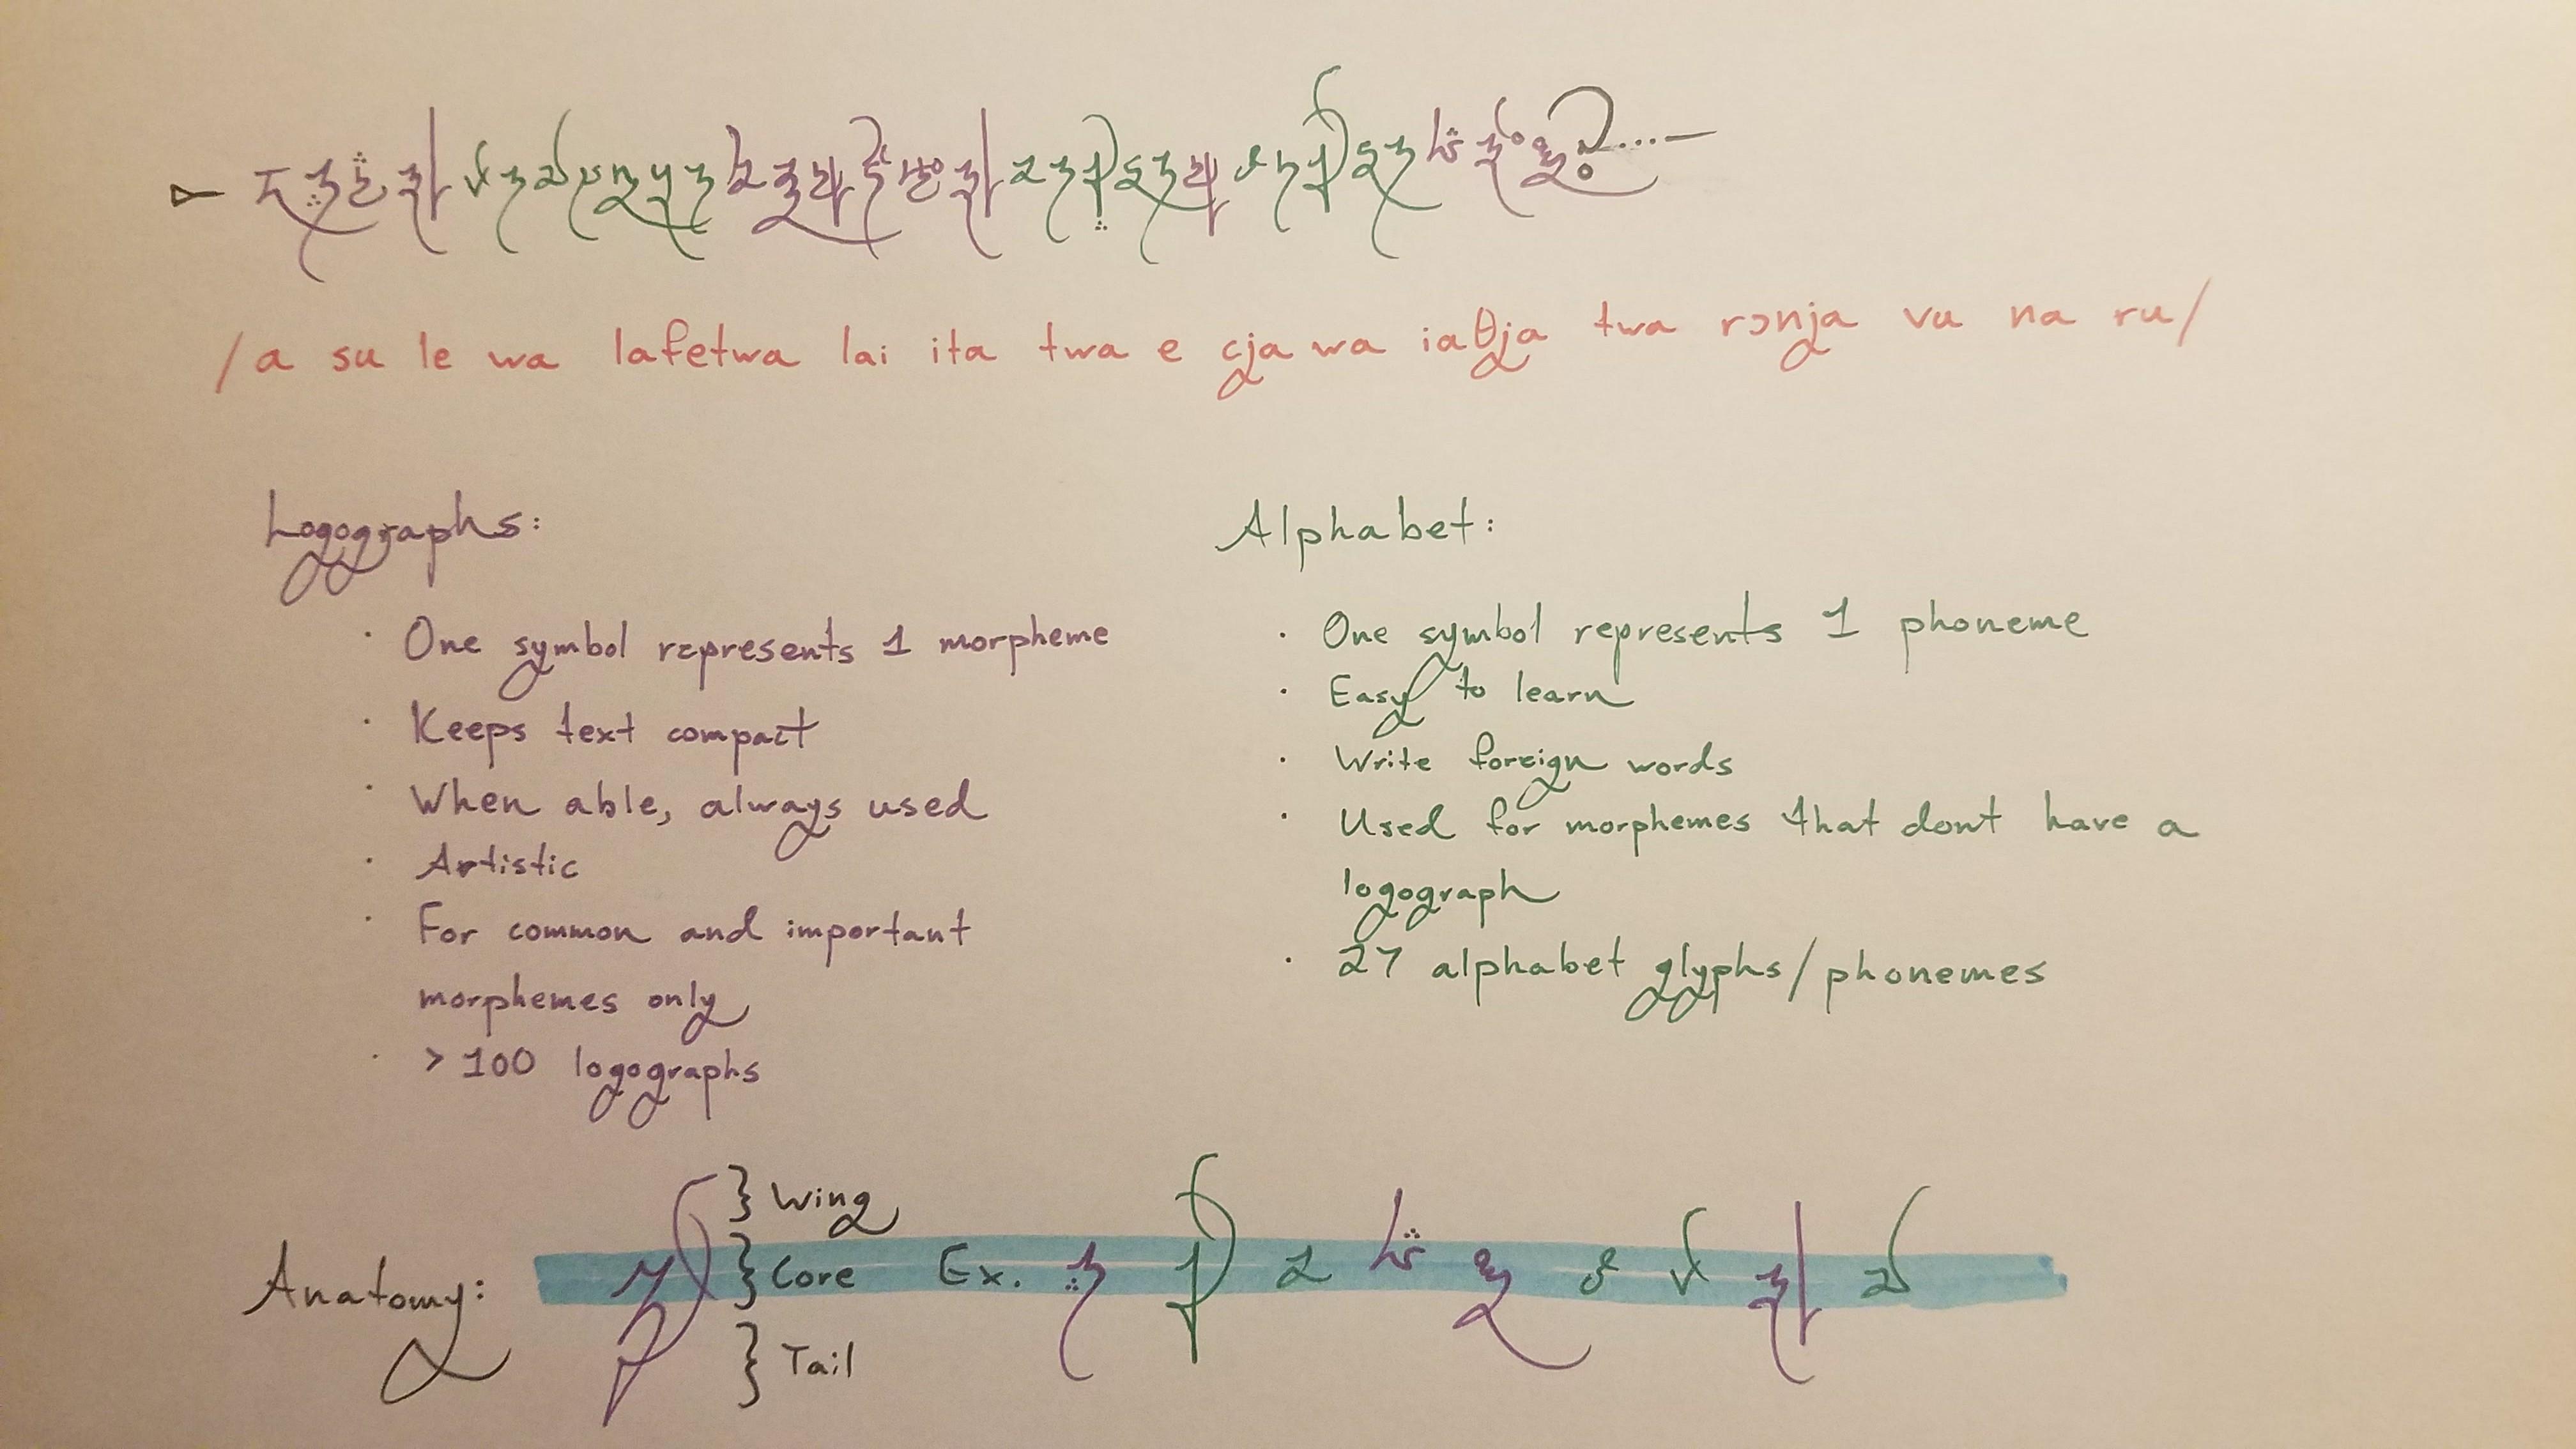 /a su le wa lafetwa lai ita twa e cja wa iaθja twa rɔnja vu na ru/
Logographs:
· One symbol represents 1 morpheme
· Keeps text compact
· When able, always used
· Artistic
· For common and important
morphemes only
· > 100 logographs
Alphabet:
· One symbol represents 1 phoneme
· Easy to learn
· Write foreign words
· Used for morphemes that dont have a
logograph
· 27 alphabet glyphs/phonemes
Anatomy:
} Wing
} Core Ex.
} Tail